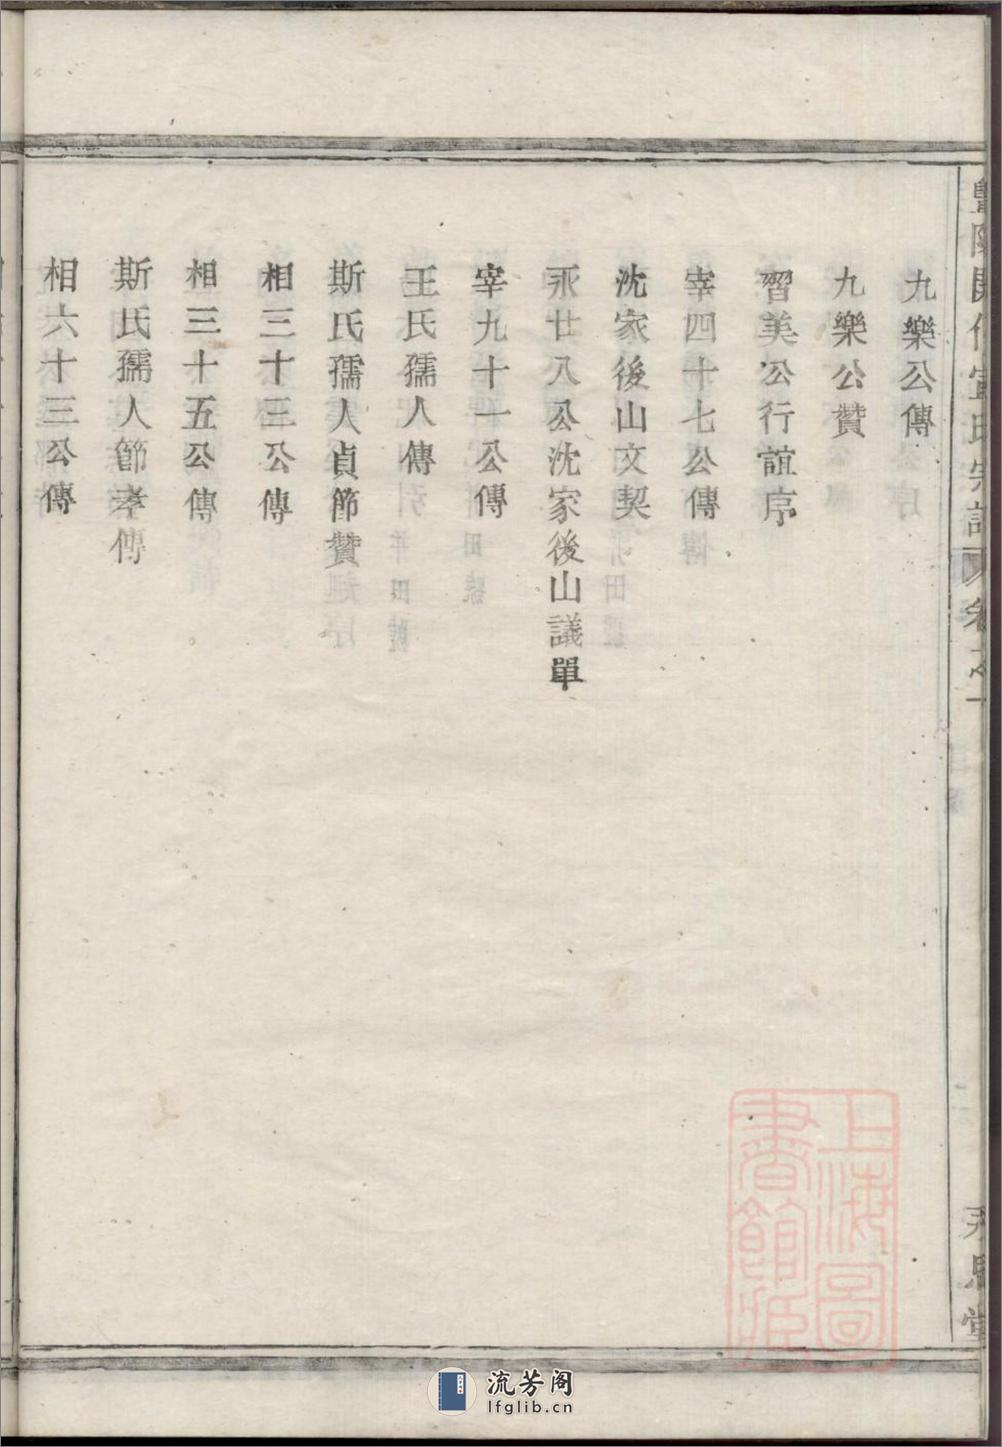 九樂公傳
九樂公贊
習美公行誼序
宰四十七公傳
沈家後山文契
永廿八公沈家後山議單
宰九十一公傳
王氏孺人傳
斯氏孺人貞節贊
相三十三公傳
相三十五公傳
斯氏孺人節孝傳
相六十三公傳
宣氏宗譜
卷之一
永思堂
上海圖
書館藏
流芳阁
lfglib.cn